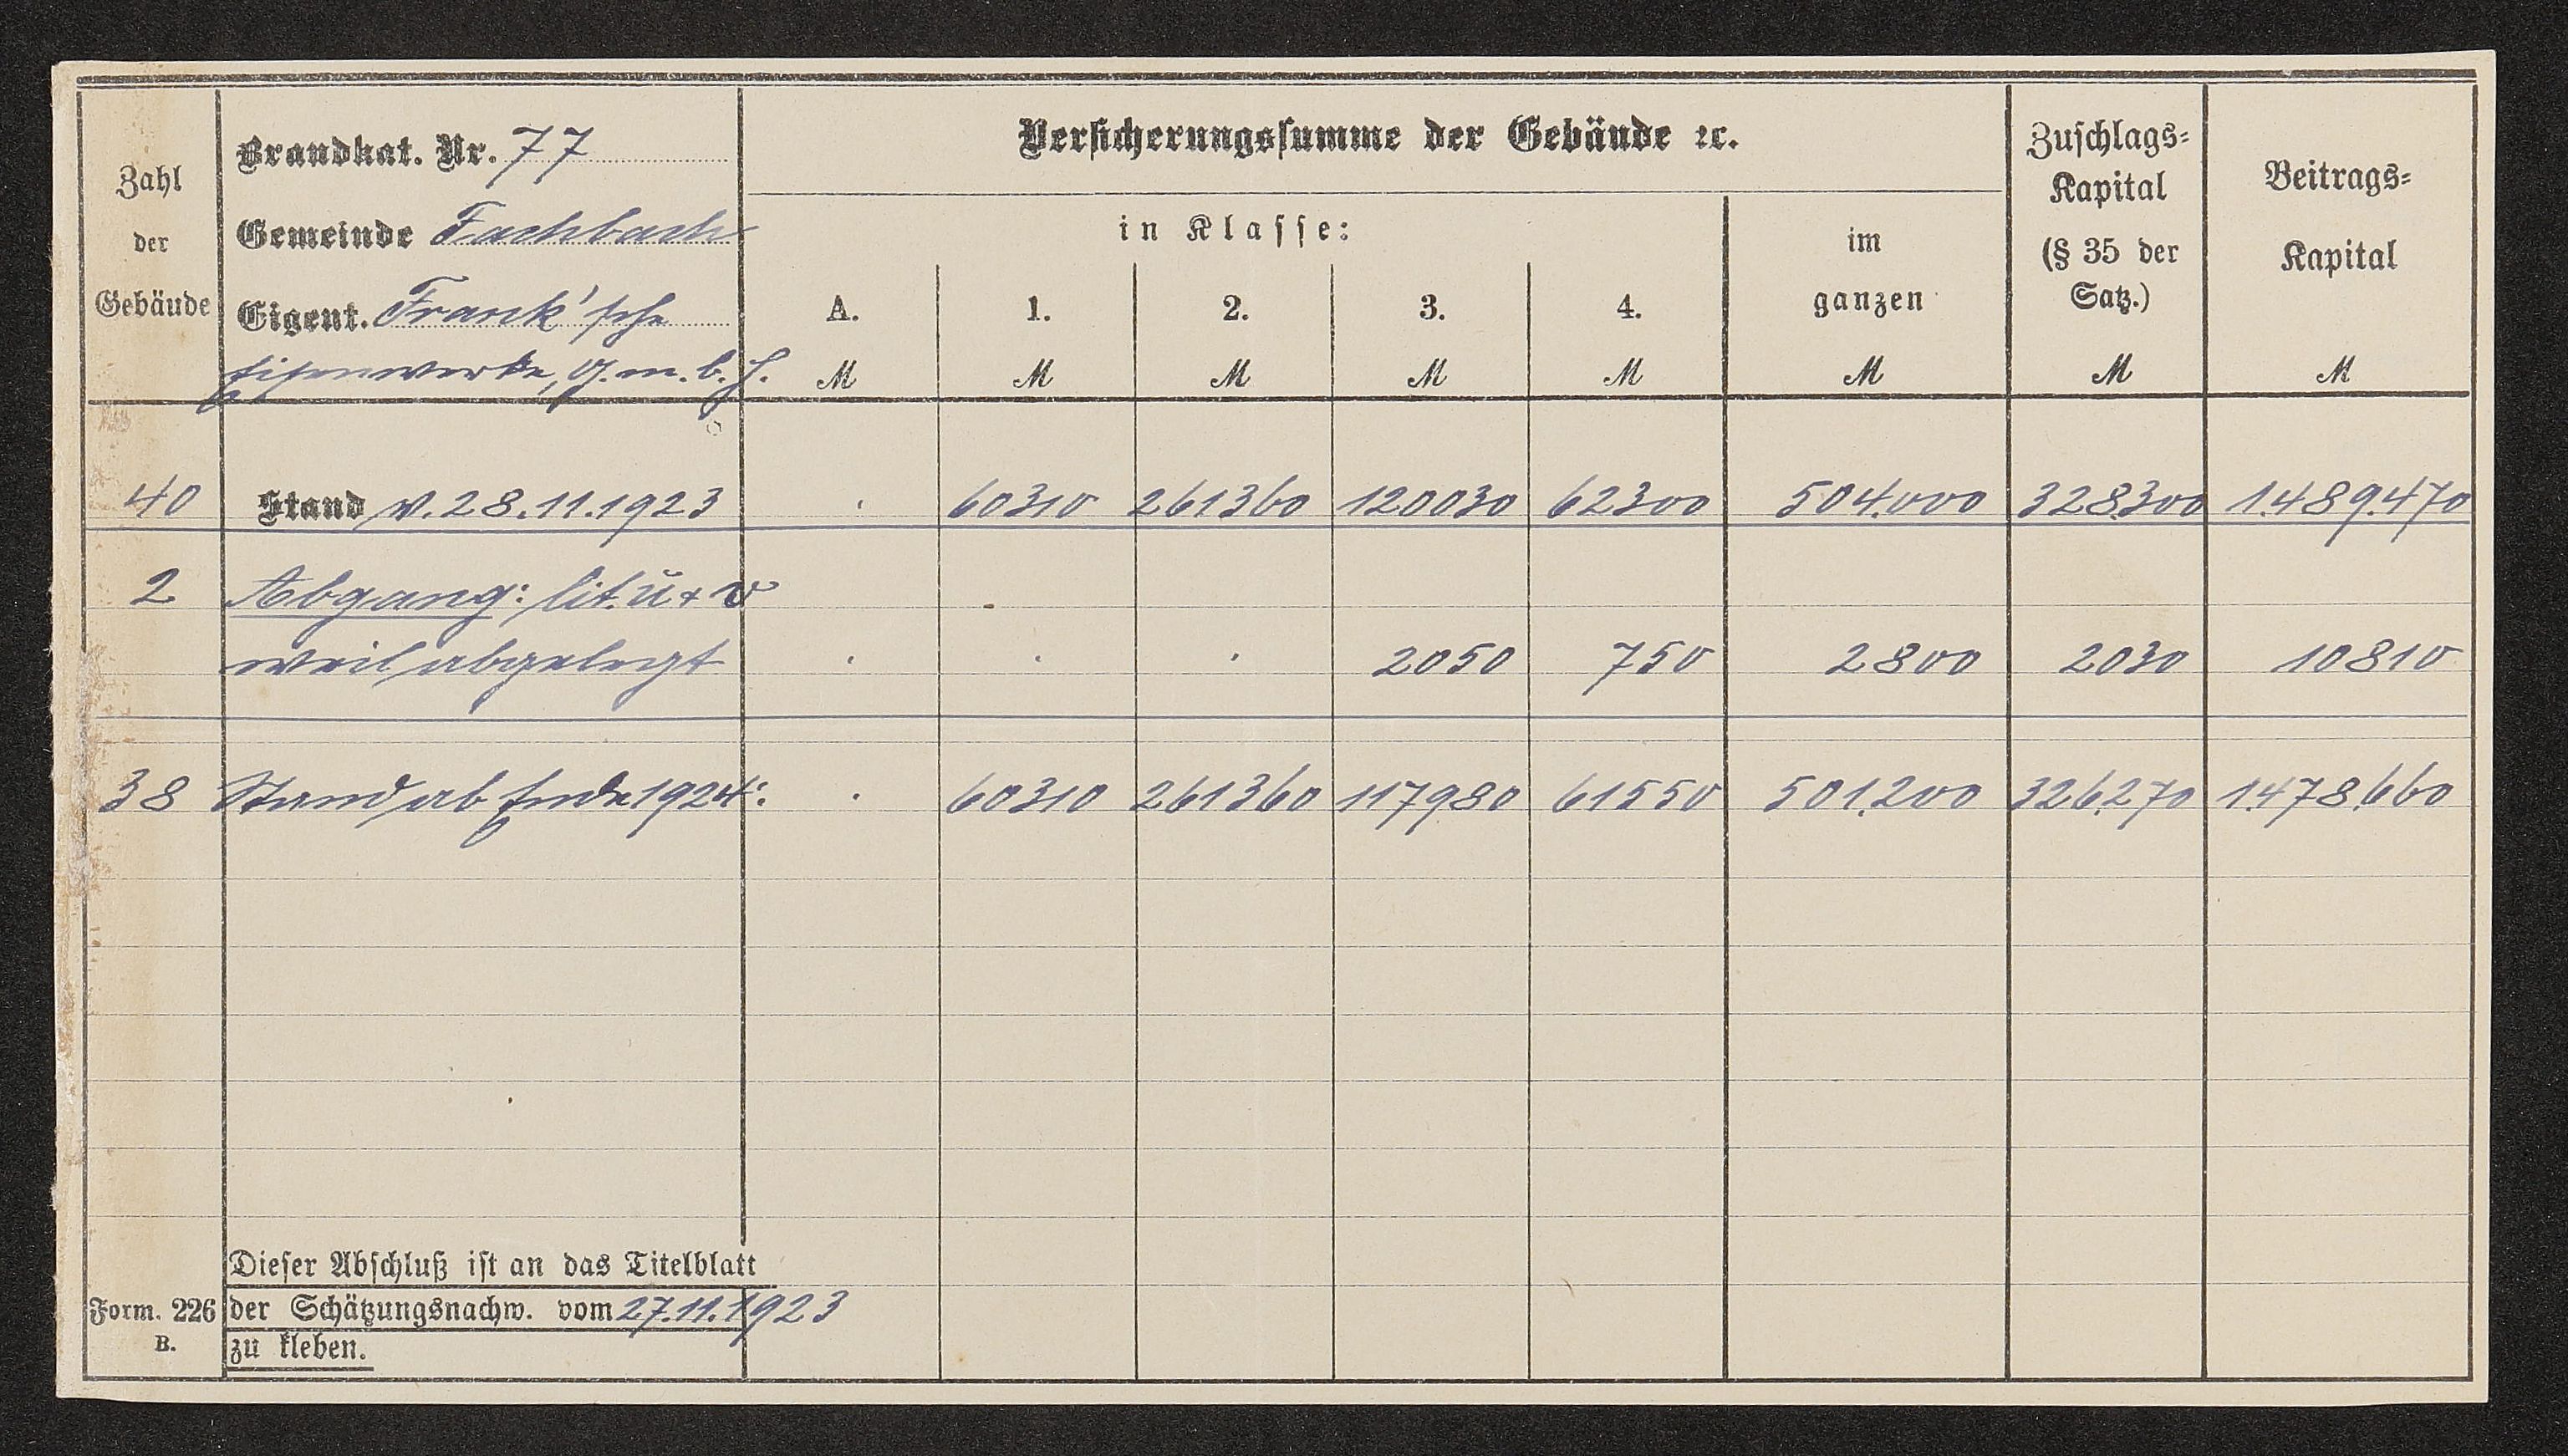 Zahl
der
Gebäude
Brandkat. Nr. 77
Gemeinde Fachbach
Eigent. Frank'sche
Eisenwerke, G.m.b.H.
Versicherungssumme der Gebäude ꝛc.
in Klasse:
A. 1. 2. 3. 4.
im
ganzen
Zuschlags-
Kapital
(§ 35 der
Satz.)
Beitrags-
Kapital
M M M M M M M M
40 Stand v. 28.11.1923 . 60310 261360 120030 62300 504.000 328.300 1.489.470
2 Abgang: lit. u + v
weil abgelegt . . . 2050 750 2800 2030 10810
38 Stand ab Ende 1924: . 60310 261360 117980 61550 501.200 326.270 1.478.660
Dieser Abschluß ist an das Titelblatt
der Schätzungsnachw. vom 27.11.1923
zu kleben.
Form. 226
B.